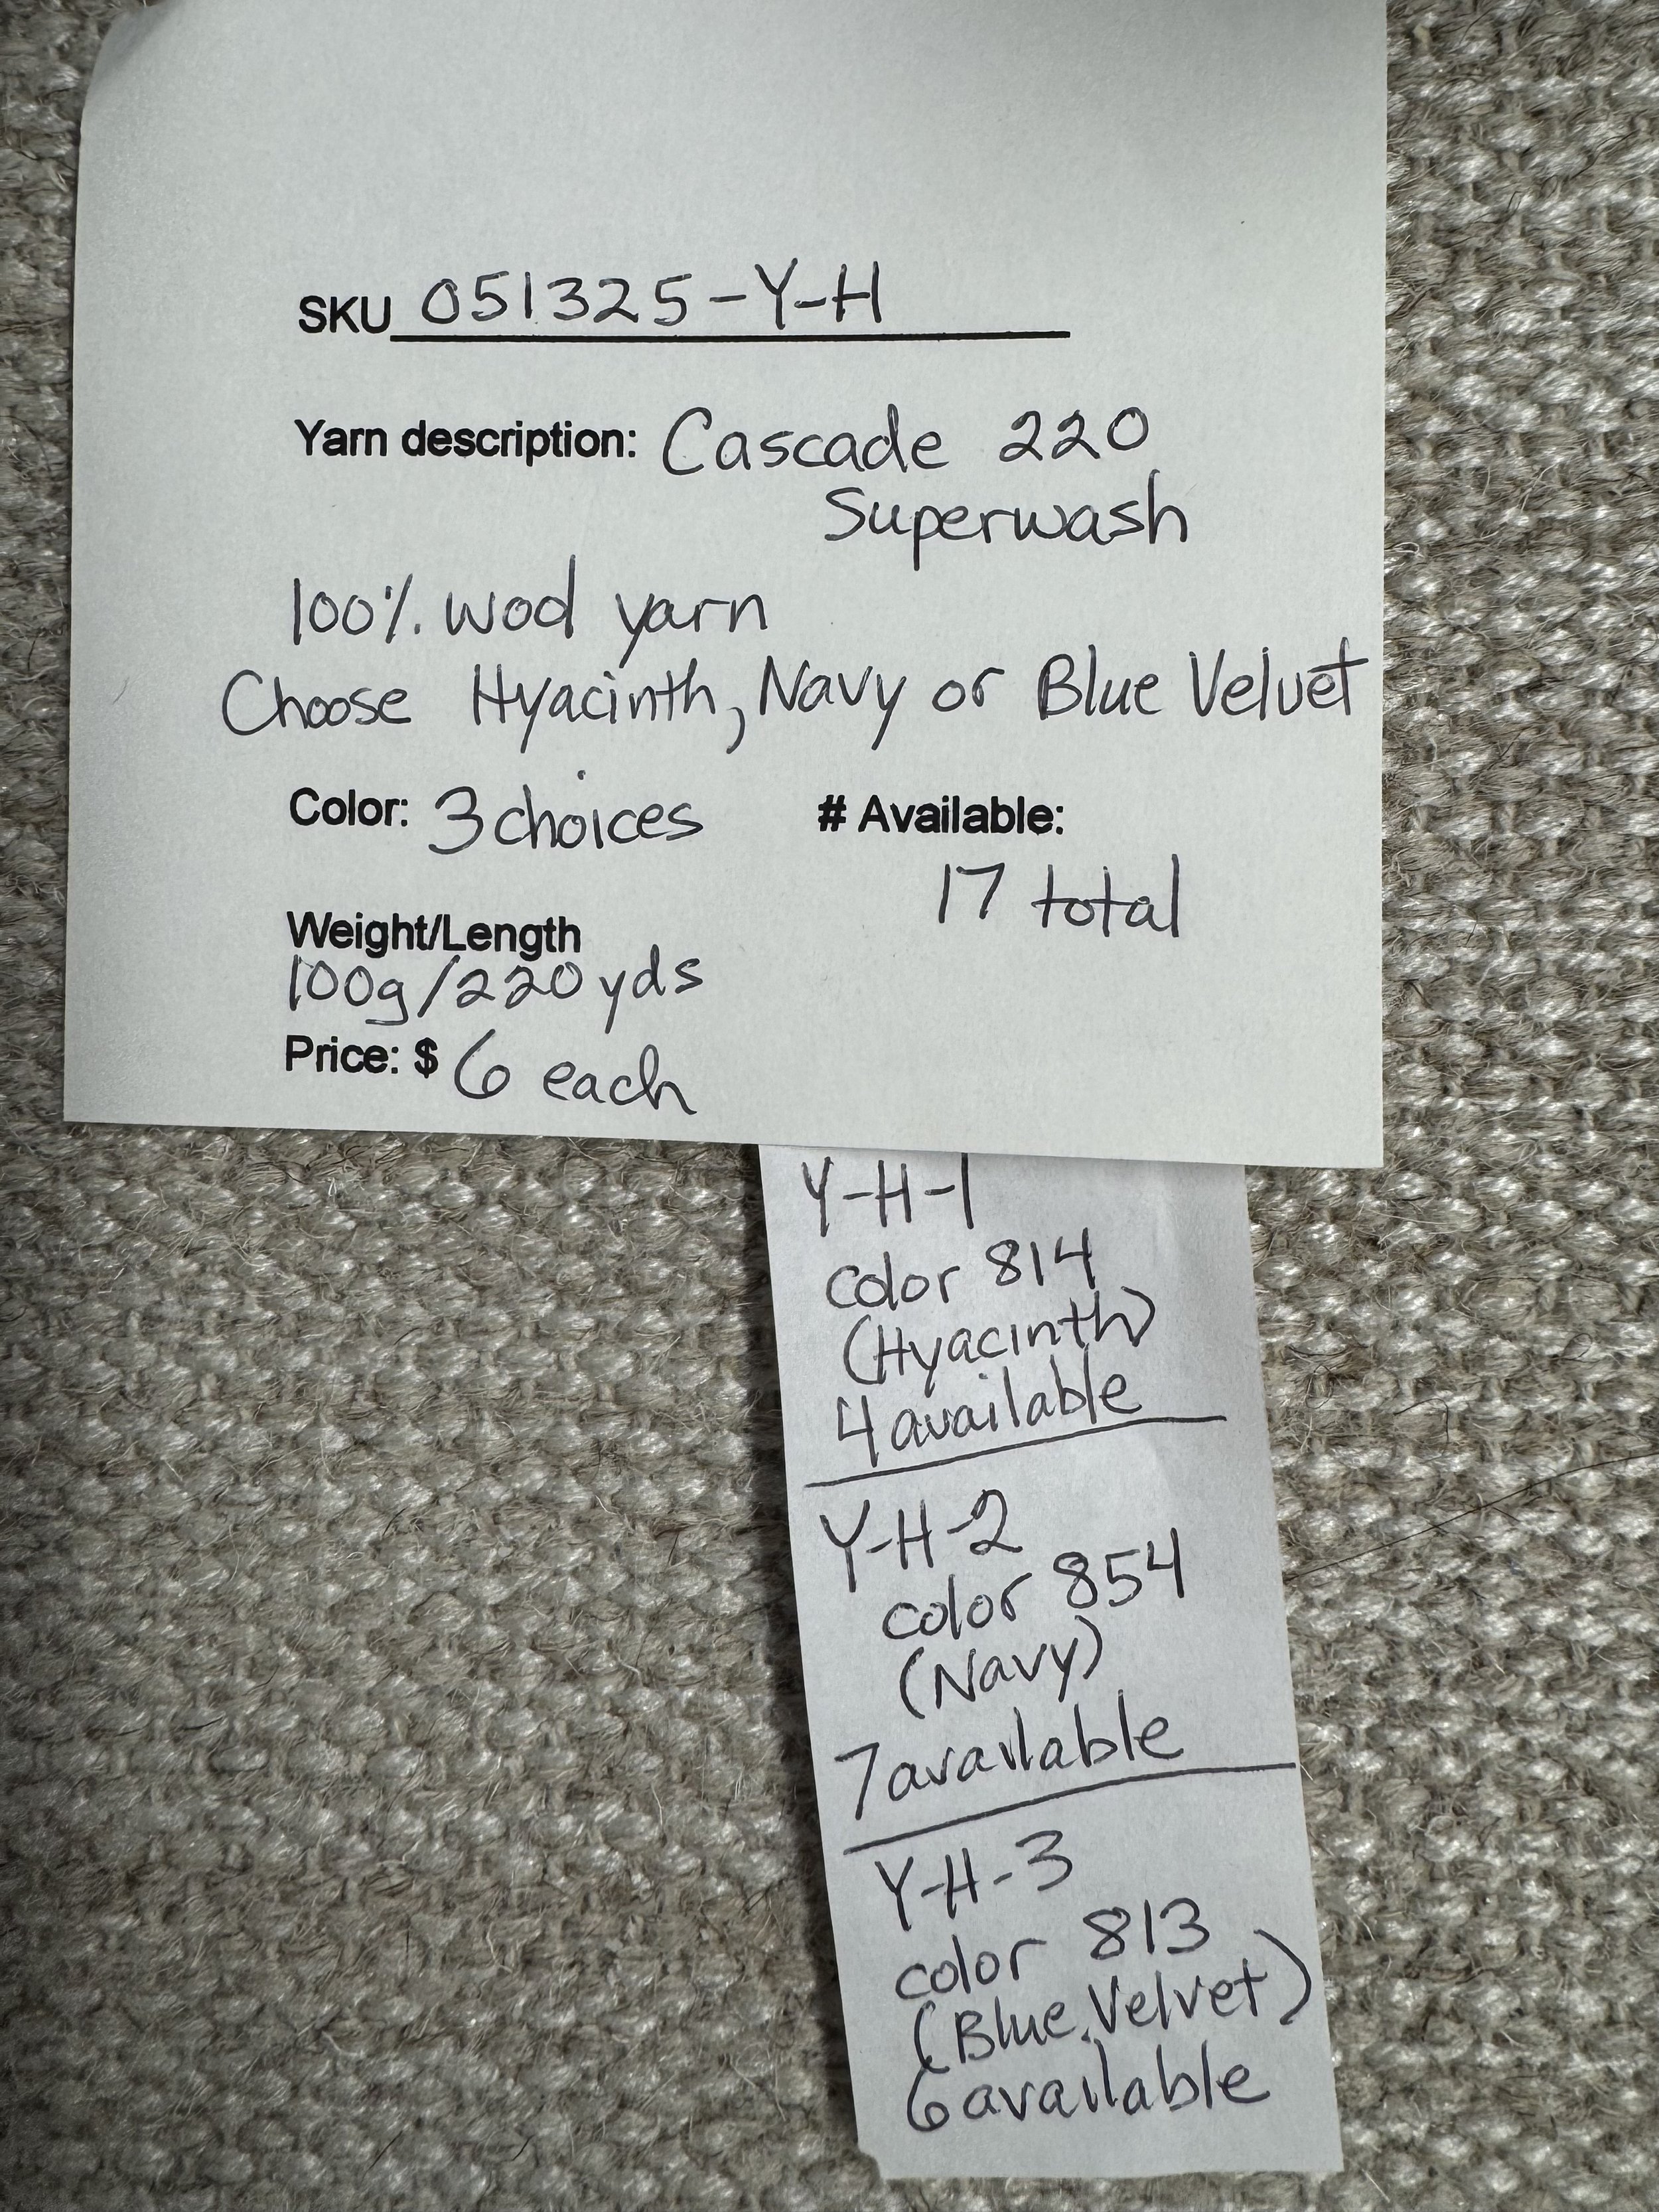 SKU 051325-Y-H
Yarn description: Cascade 220
Superwash
100% wool yarn
Choose Hyacinth, Navy or Blue Velvet
Color: 3 choices # Available:
17 total
Weight/Length
100g/220 yds
Price: $ 6 each
Y-H-1
color 814
(Hyacinth)
4 available
Y-H-2
color 854
(Navy)
7 available
Y-H-3
color 813
(Blue Velvet)
6 available